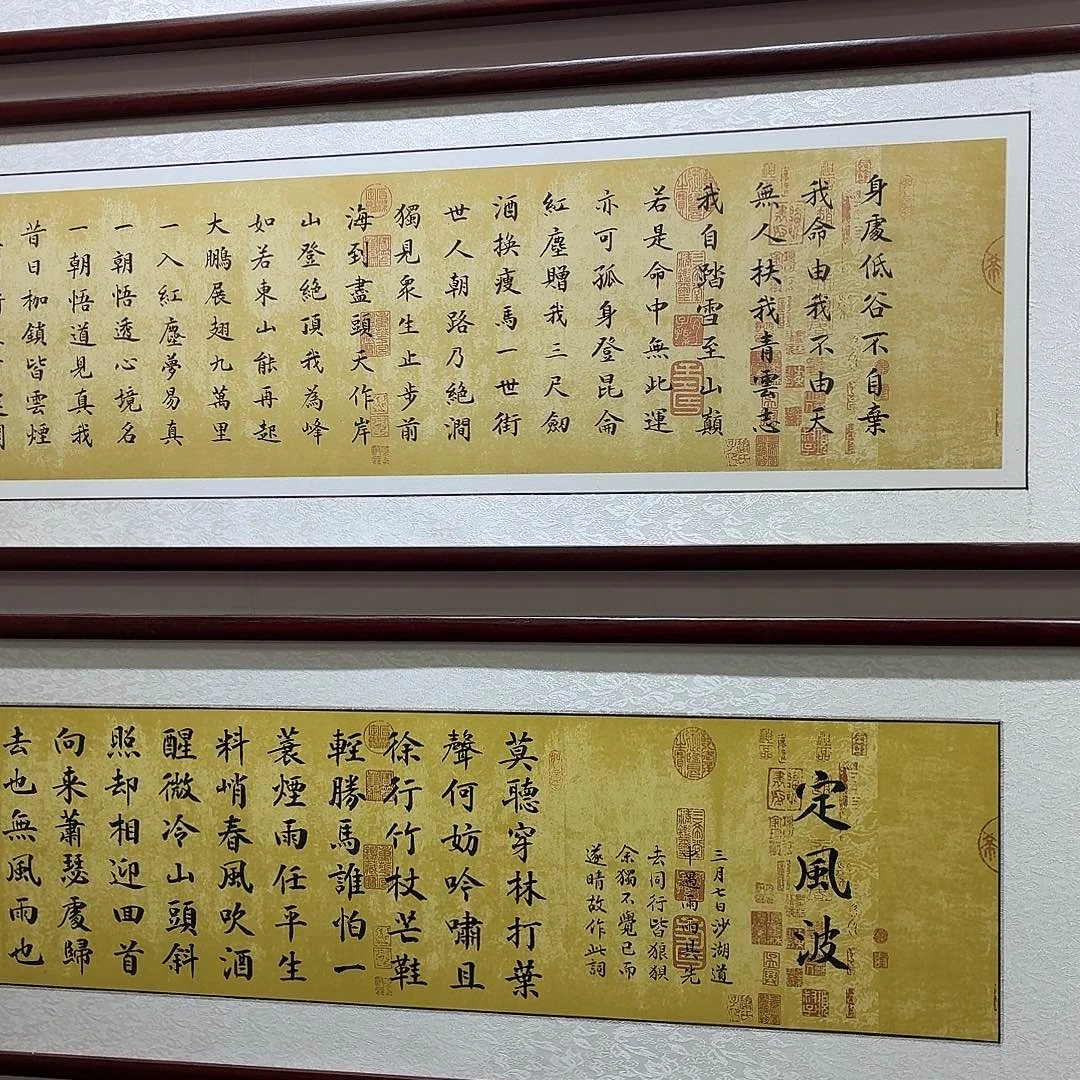 身處低谷不自棄
我命由我不由天
無人扶我青雲志
我自踏雪至山巔
若是命中無此運
亦可孤身登昆侖
紅塵贈我三尺劍
酒換瘦馬一世街
世人朝路乃絕澗
獨見眾生止步前
海到盡頭天作岸
山登絕頂我為峰
如若東山能再起
大鵬展翅九萬里
一入紅塵夢易真
一朝悟透心境名
一朝悟道見真我
昔日枷鎖皆雲煙
定風波
三月七日沙湖道
中遇雨雨具先
去同行皆狼狽
余獨不覺已而
遂晴故作此詞
莫聽穿林打葉
聲何妨吟嘯且
徐行竹杖芒鞋
輕勝馬誰怕一
蓑煙雨任平生
料峭春風吹酒
醒微冷山頭斜
照却相迎回首
向来蕭瑟處歸
去也無風雨也